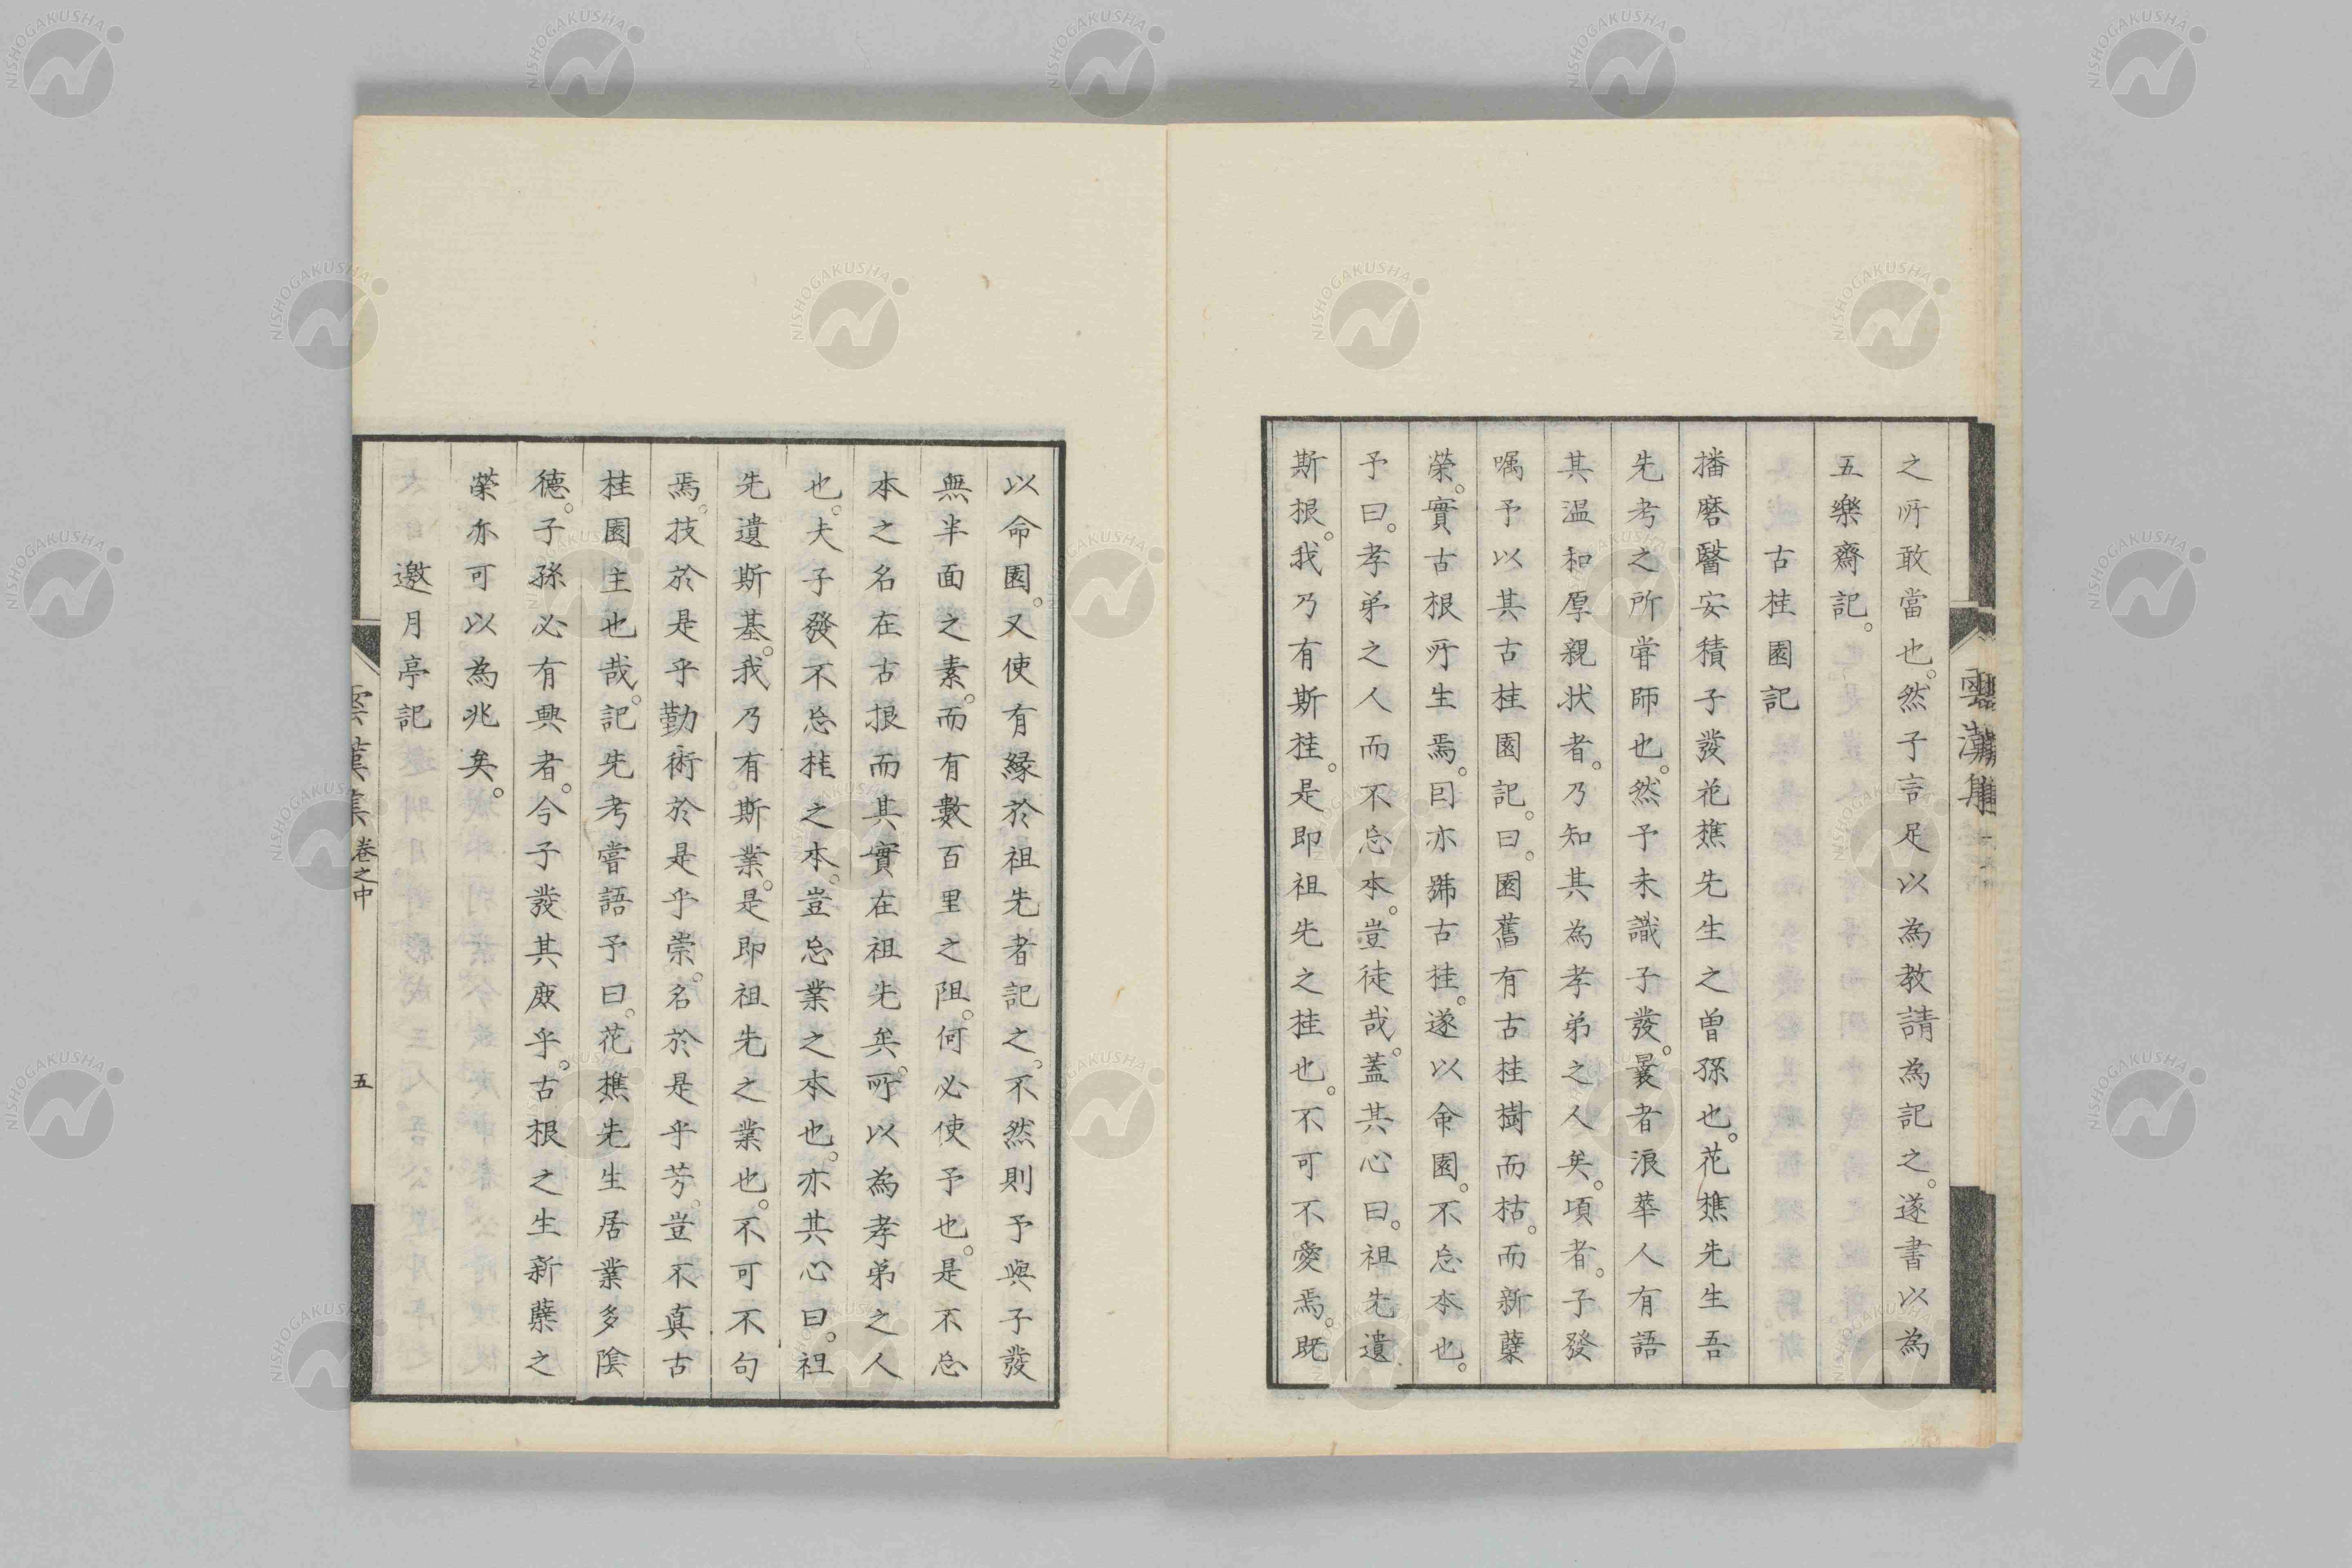 之所敢當也。然子言足以為教請為記之。遂書以為
五樂齋記。
古桂園記
播磨醫安積子發花樵先生之曽孫也。花樵先生吾
先考之所甞師也。然予未識子發。曩者浪華人有語
其温和厚親狀者。乃知其為孝弟之人矣。頃者。子發
嘱予以其古桂園記。曰。園舊有古桂樹而枯。而新蘖
榮。實古根所生焉。因亦號古桂。遂以命園。不忘本也。
予曰。孝弟之人而不忘本。豈徒哉。蓋其心曰。祖先遺
斯根。我乃有斯桂。是即祖先之桂也。不可不愛焉。既
以命園。又使有緣於祖先者記之。不然則予與子發
無半面之素。而有數百里之阻。何必使予也。是不忘
本之名在古根而其實在祖先矣。所以為孝弟之人
也。夫子發不忘桂之本。豈忘業之本也。亦其心曰。祖
先遺斯基。我乃有斯業。是即祖先之業也。不可不句
焉。技於是乎勤術於是乎崇。名於是乎芳。豈不真古
桂園主也哉。記先考嘗語予曰。花樵先生居業多陰
德。子孫必有興者。今子發其庶乎。古根之生新蘖之
榮亦可以為兆矣。
邀月亭記
雲漢集 卷之中 五
NISHOGAKUSHA